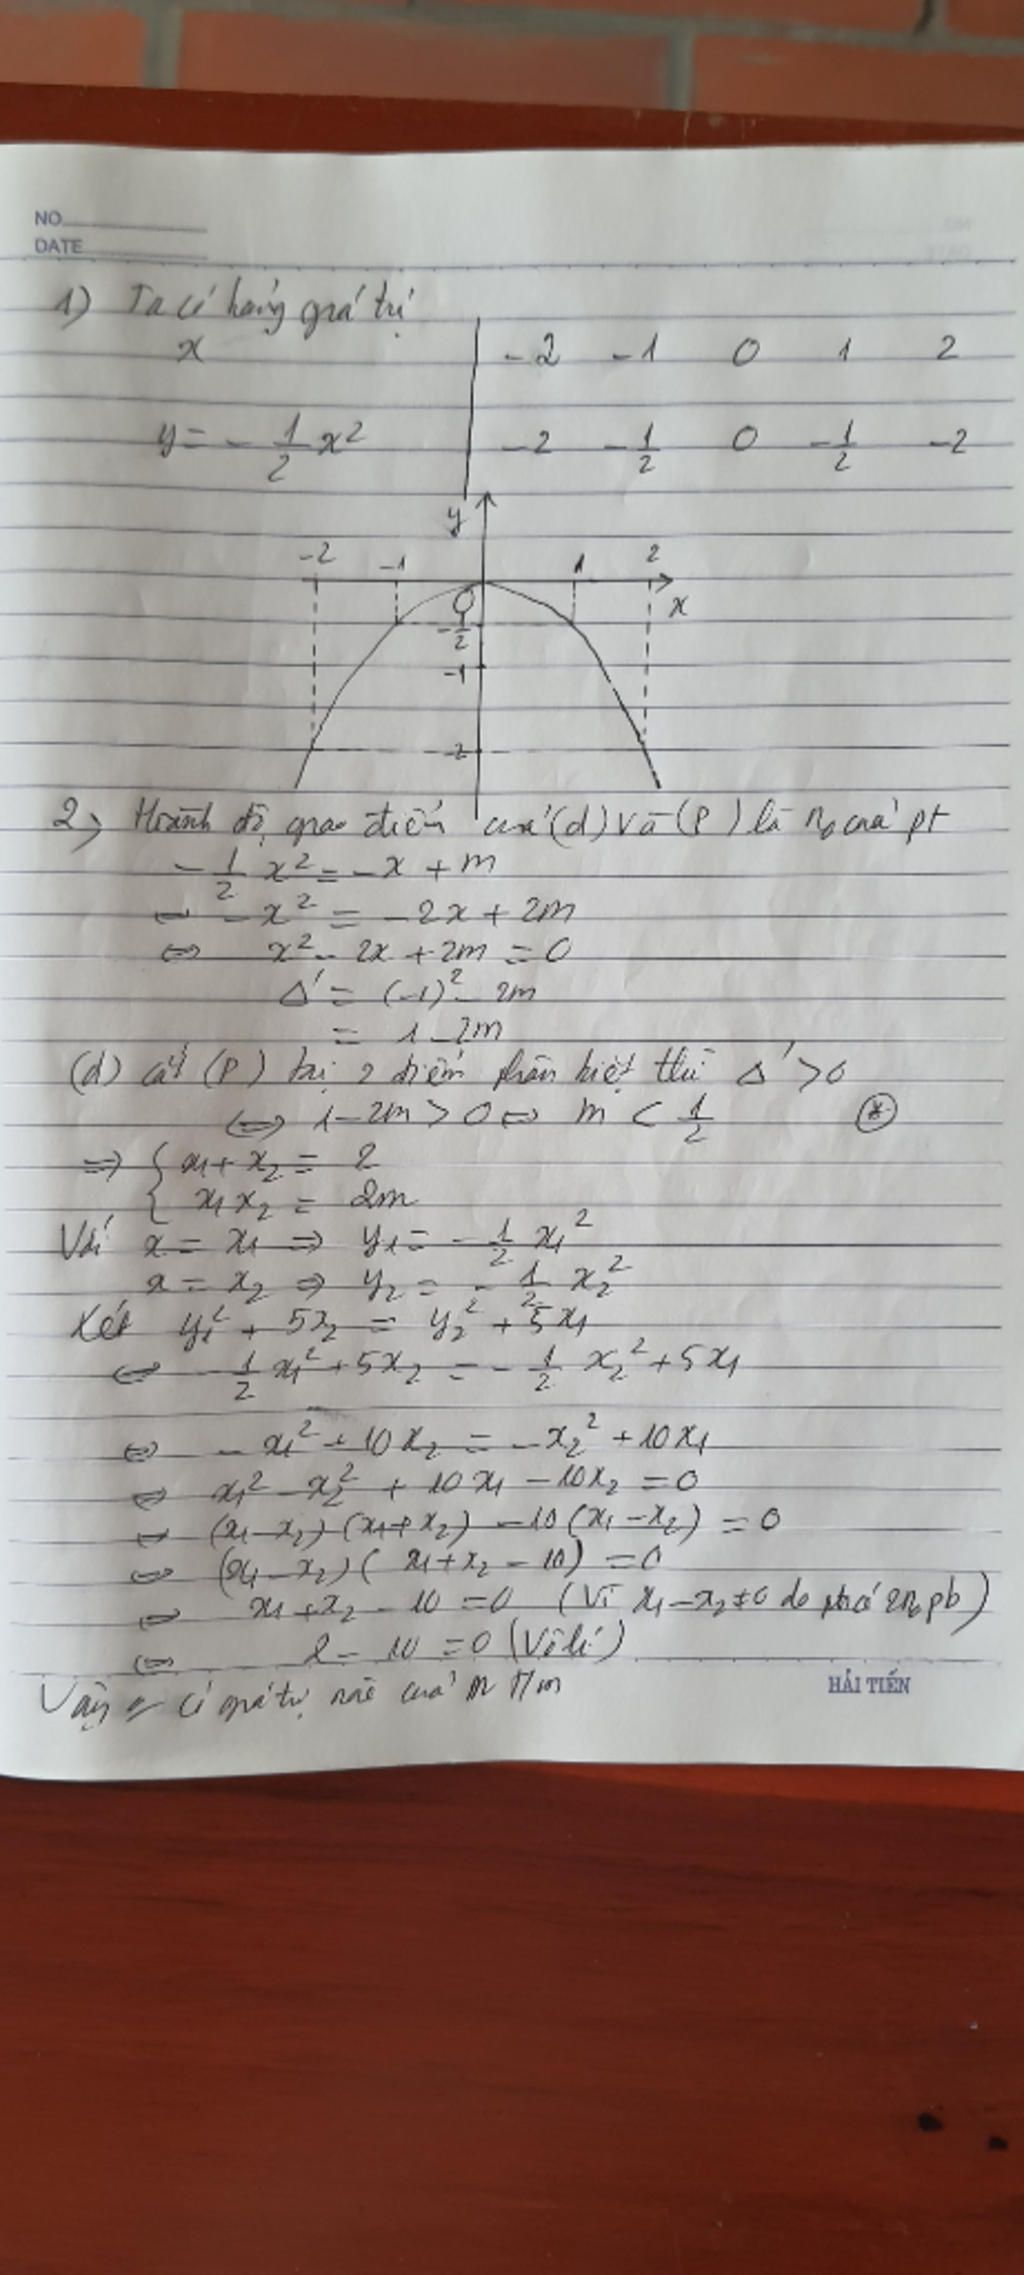 NO
DATE
1) Ta có bảng giá trị
x -2 -1 0 1 2
y = -1/2 x² -2 -1/2 0 -1/2 -2
y
-2 -1 1 2
O x
-1/2
-1
-2
2, Hoành độ giao điểm của (d) và (P) là n₀ của pt
-1/2 x² = -x + m
⇔ -x² = -2x + 2m
⇔ x² - 2x + 2m = 0
Δ' = (-1)² - 2m
= 1 - 2m
(d) cắt (P) tại 2 điểm phân biệt thì Δ' > 0
⇔ 1 - 2m > 0 ⇔ m < 1/2 (*)
⇒ { x₁ + x₂ = 2
x₁x₂ = 2m
Với x = x₁ ⇒ y₁ = -1/2 x₁²
x = x₂ ⇒ y₂ = -1/2 x₂²
Xét y₁² + 5x₂ = y₂² + 5x₁
⇔ -1/2 x₁² + 5x₂ = -1/2 x₂² + 5x₁
⇔ -x₁² + 10x₂ = -x₂² + 10x₁
⇔ x₁² - x₂² + 10x₁ - 10x₂ = 0
⇔ (x₁ - x₂)(x₁ + x₂) - 10(x₁ - x₂) = 0
⇔ (x₁ - x₂)(x₁ + x₂ - 10) = 0
⇔ x₁ + x₂ - 10 = 0 (Vì x₁ - x₂ ≠ 0 do pt có 2n₀ pb)
⇔ 2 - 10 = 0 (Vô lí)
Vậy có giá trị nào của m t/m
HẢI TIẾN